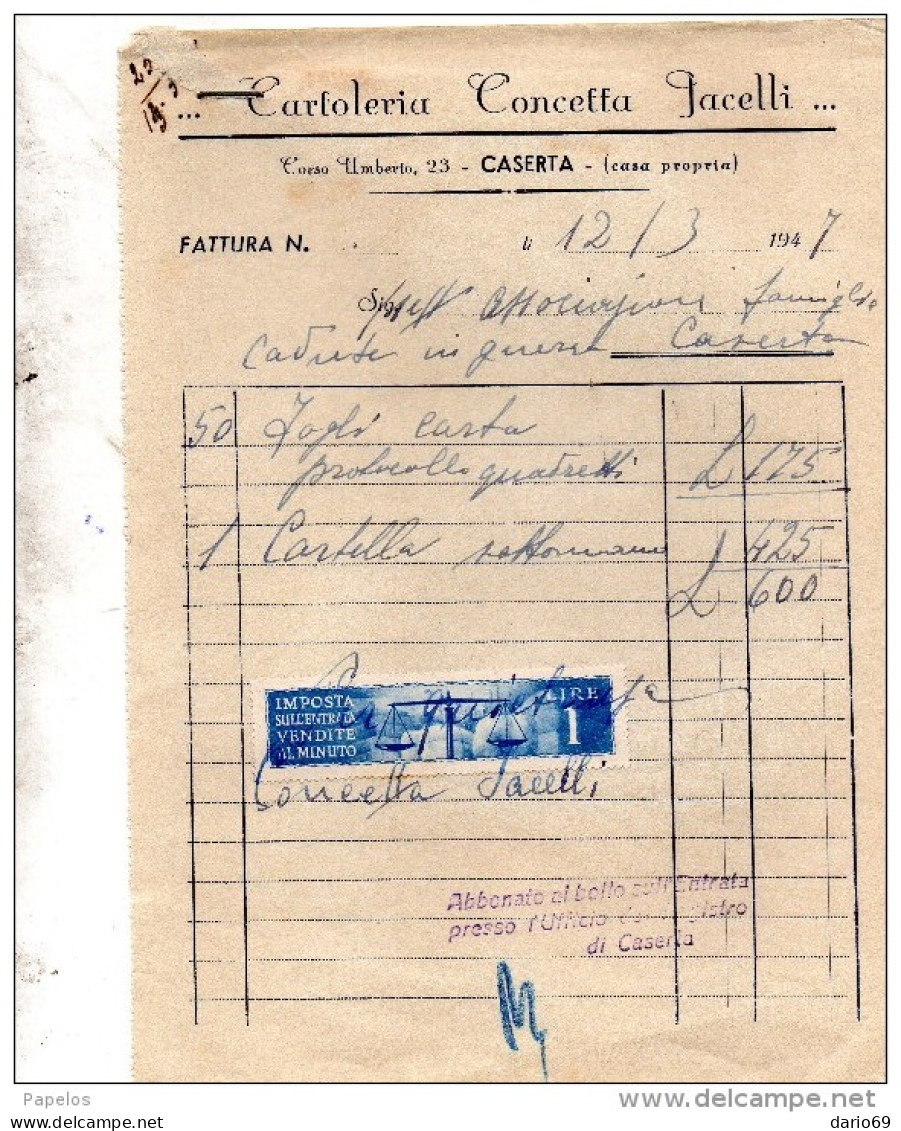 ... Cartoleria Concetta Jacelli ...
Corso Umberto, 23 - CASERTA - (casa propria)
FATTURA N. li 12/3 1947
Associazione famiglie
Cadute in guerra Caserta
50 Fogli carta
protocollo quadretti L 175
1 Cartella sottomano 425
L 600
IMPOSTA
SULL'ENTRATA
VENDITE
AL MINUTO
LIRE
1
Per quietanza
Concetta Jacelli
Abbonato al bollo sull'Entrata
presso l'Ufficio del Registro
di Caserta
Papelos
delcampe.net
dario69